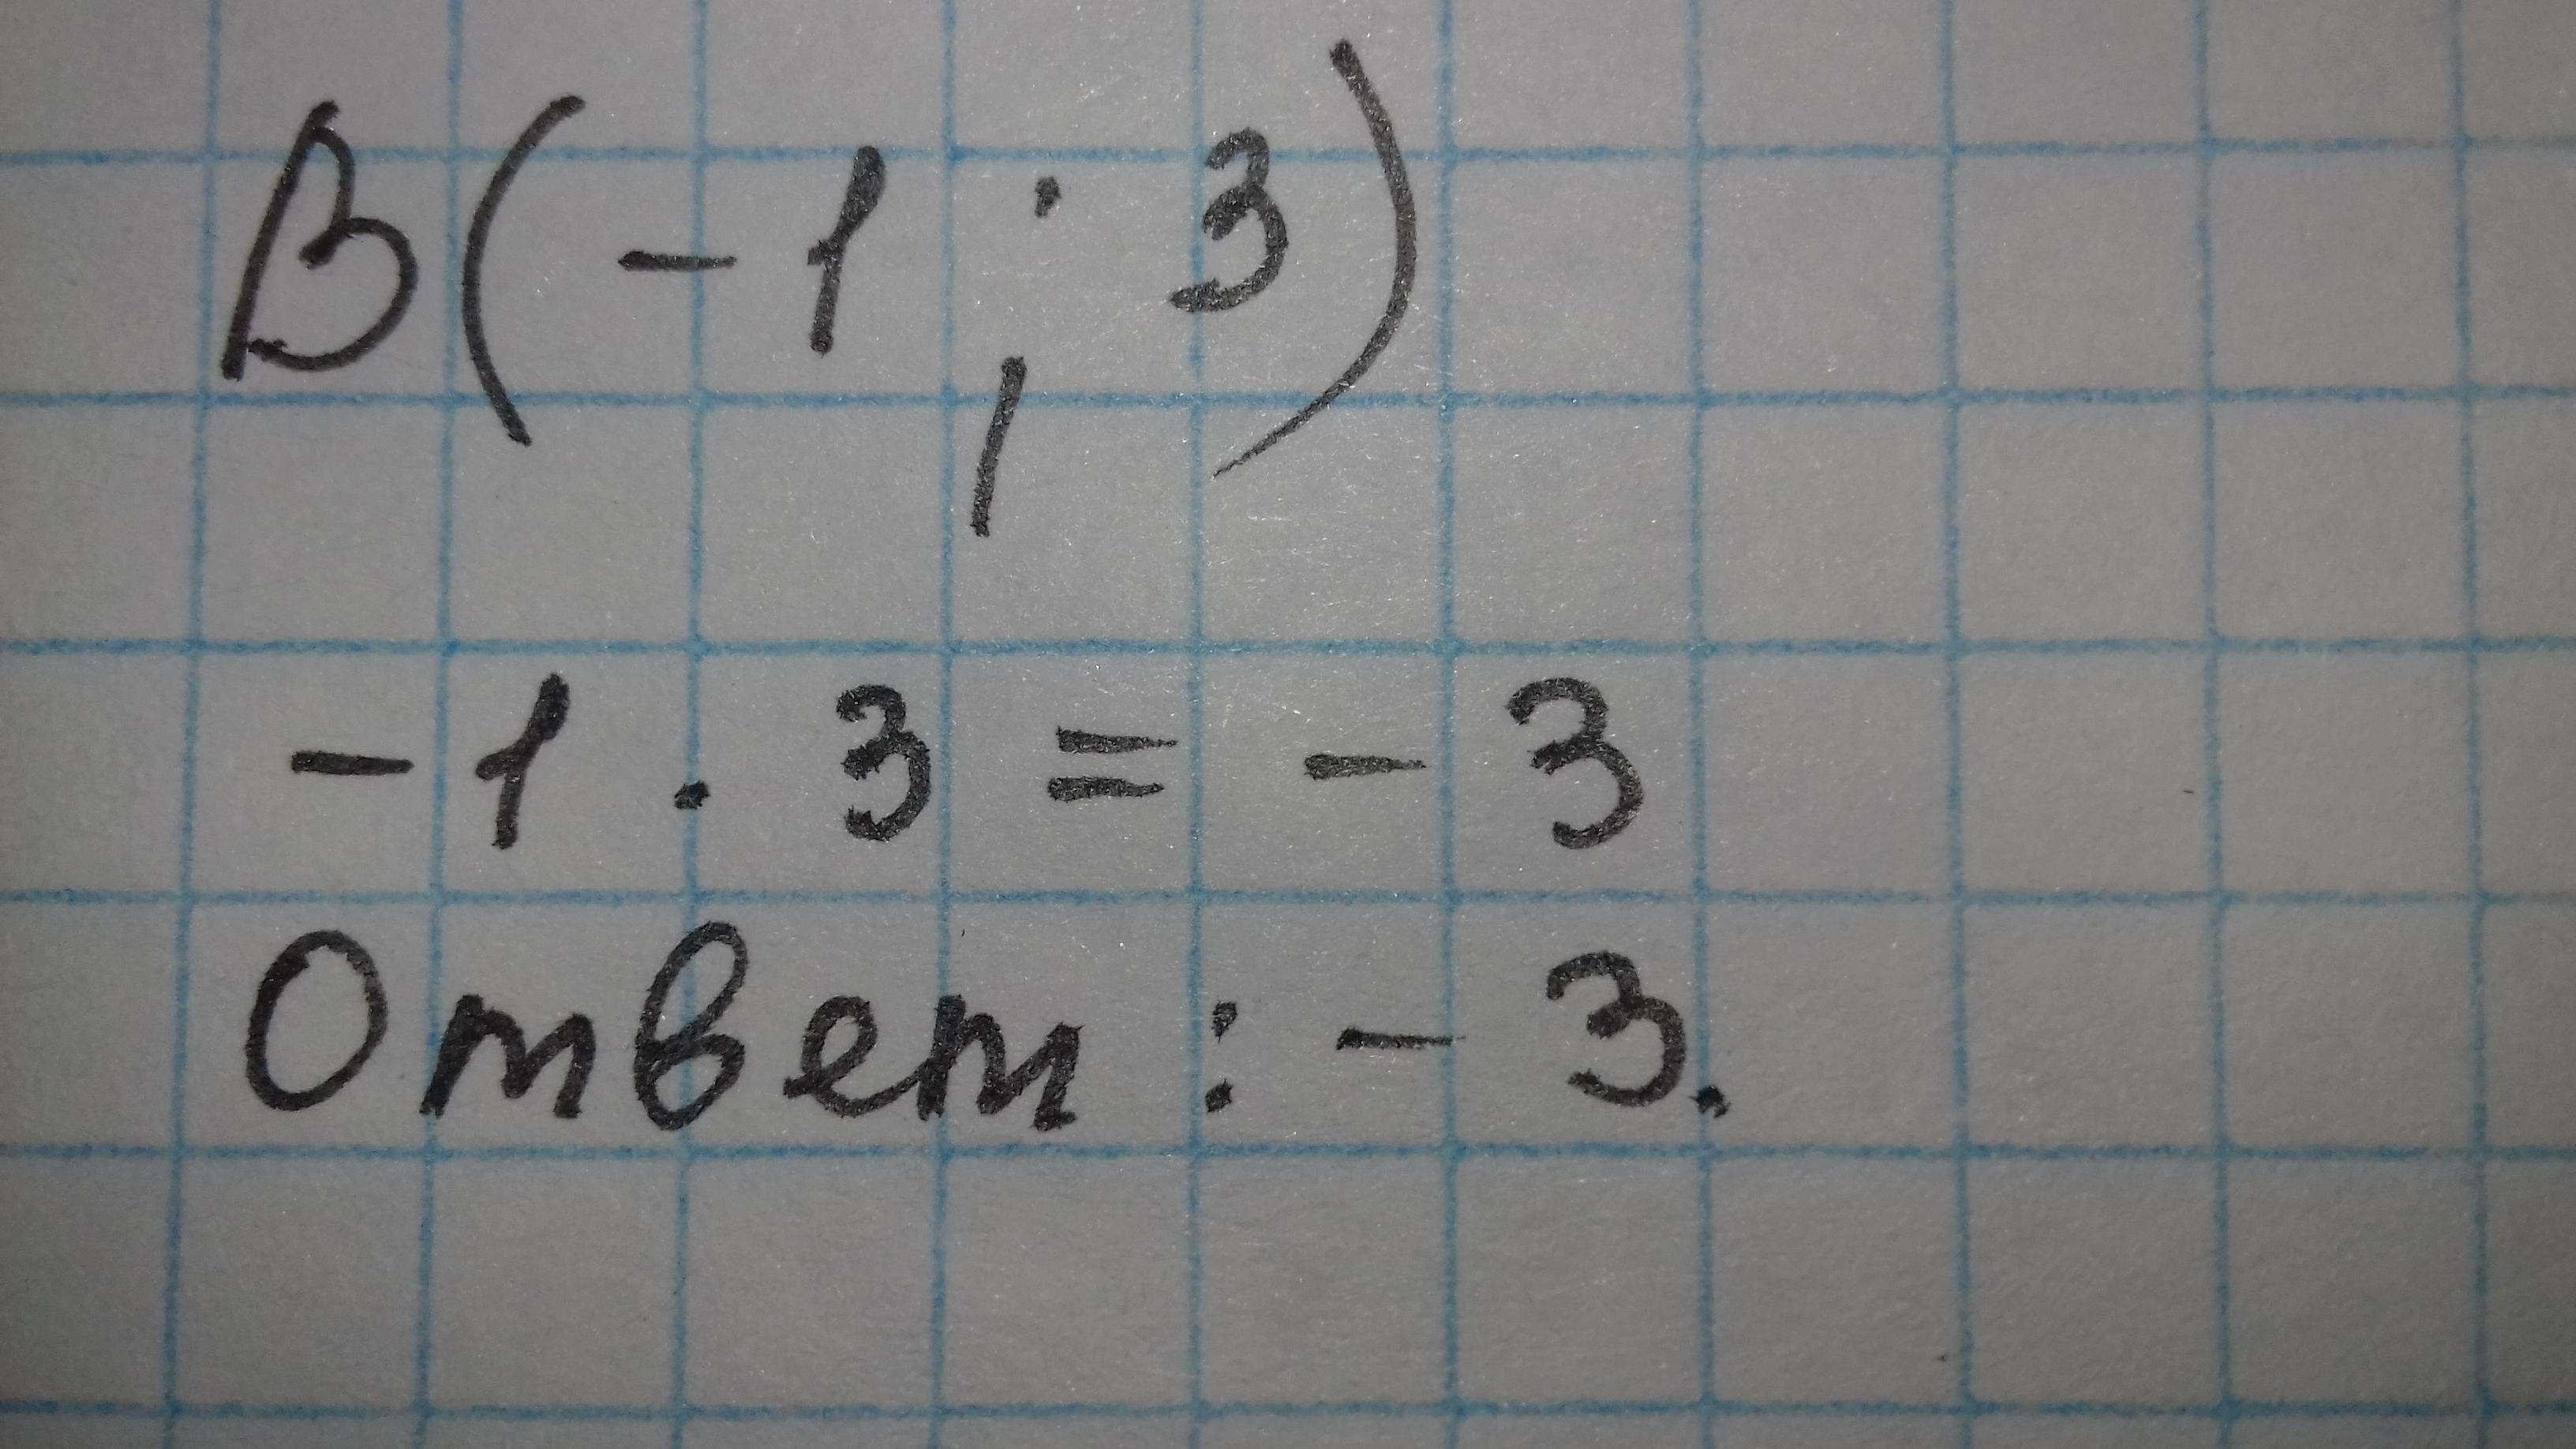 B(-1; 3)
-1 · 3 = -3
Ответ: -3.